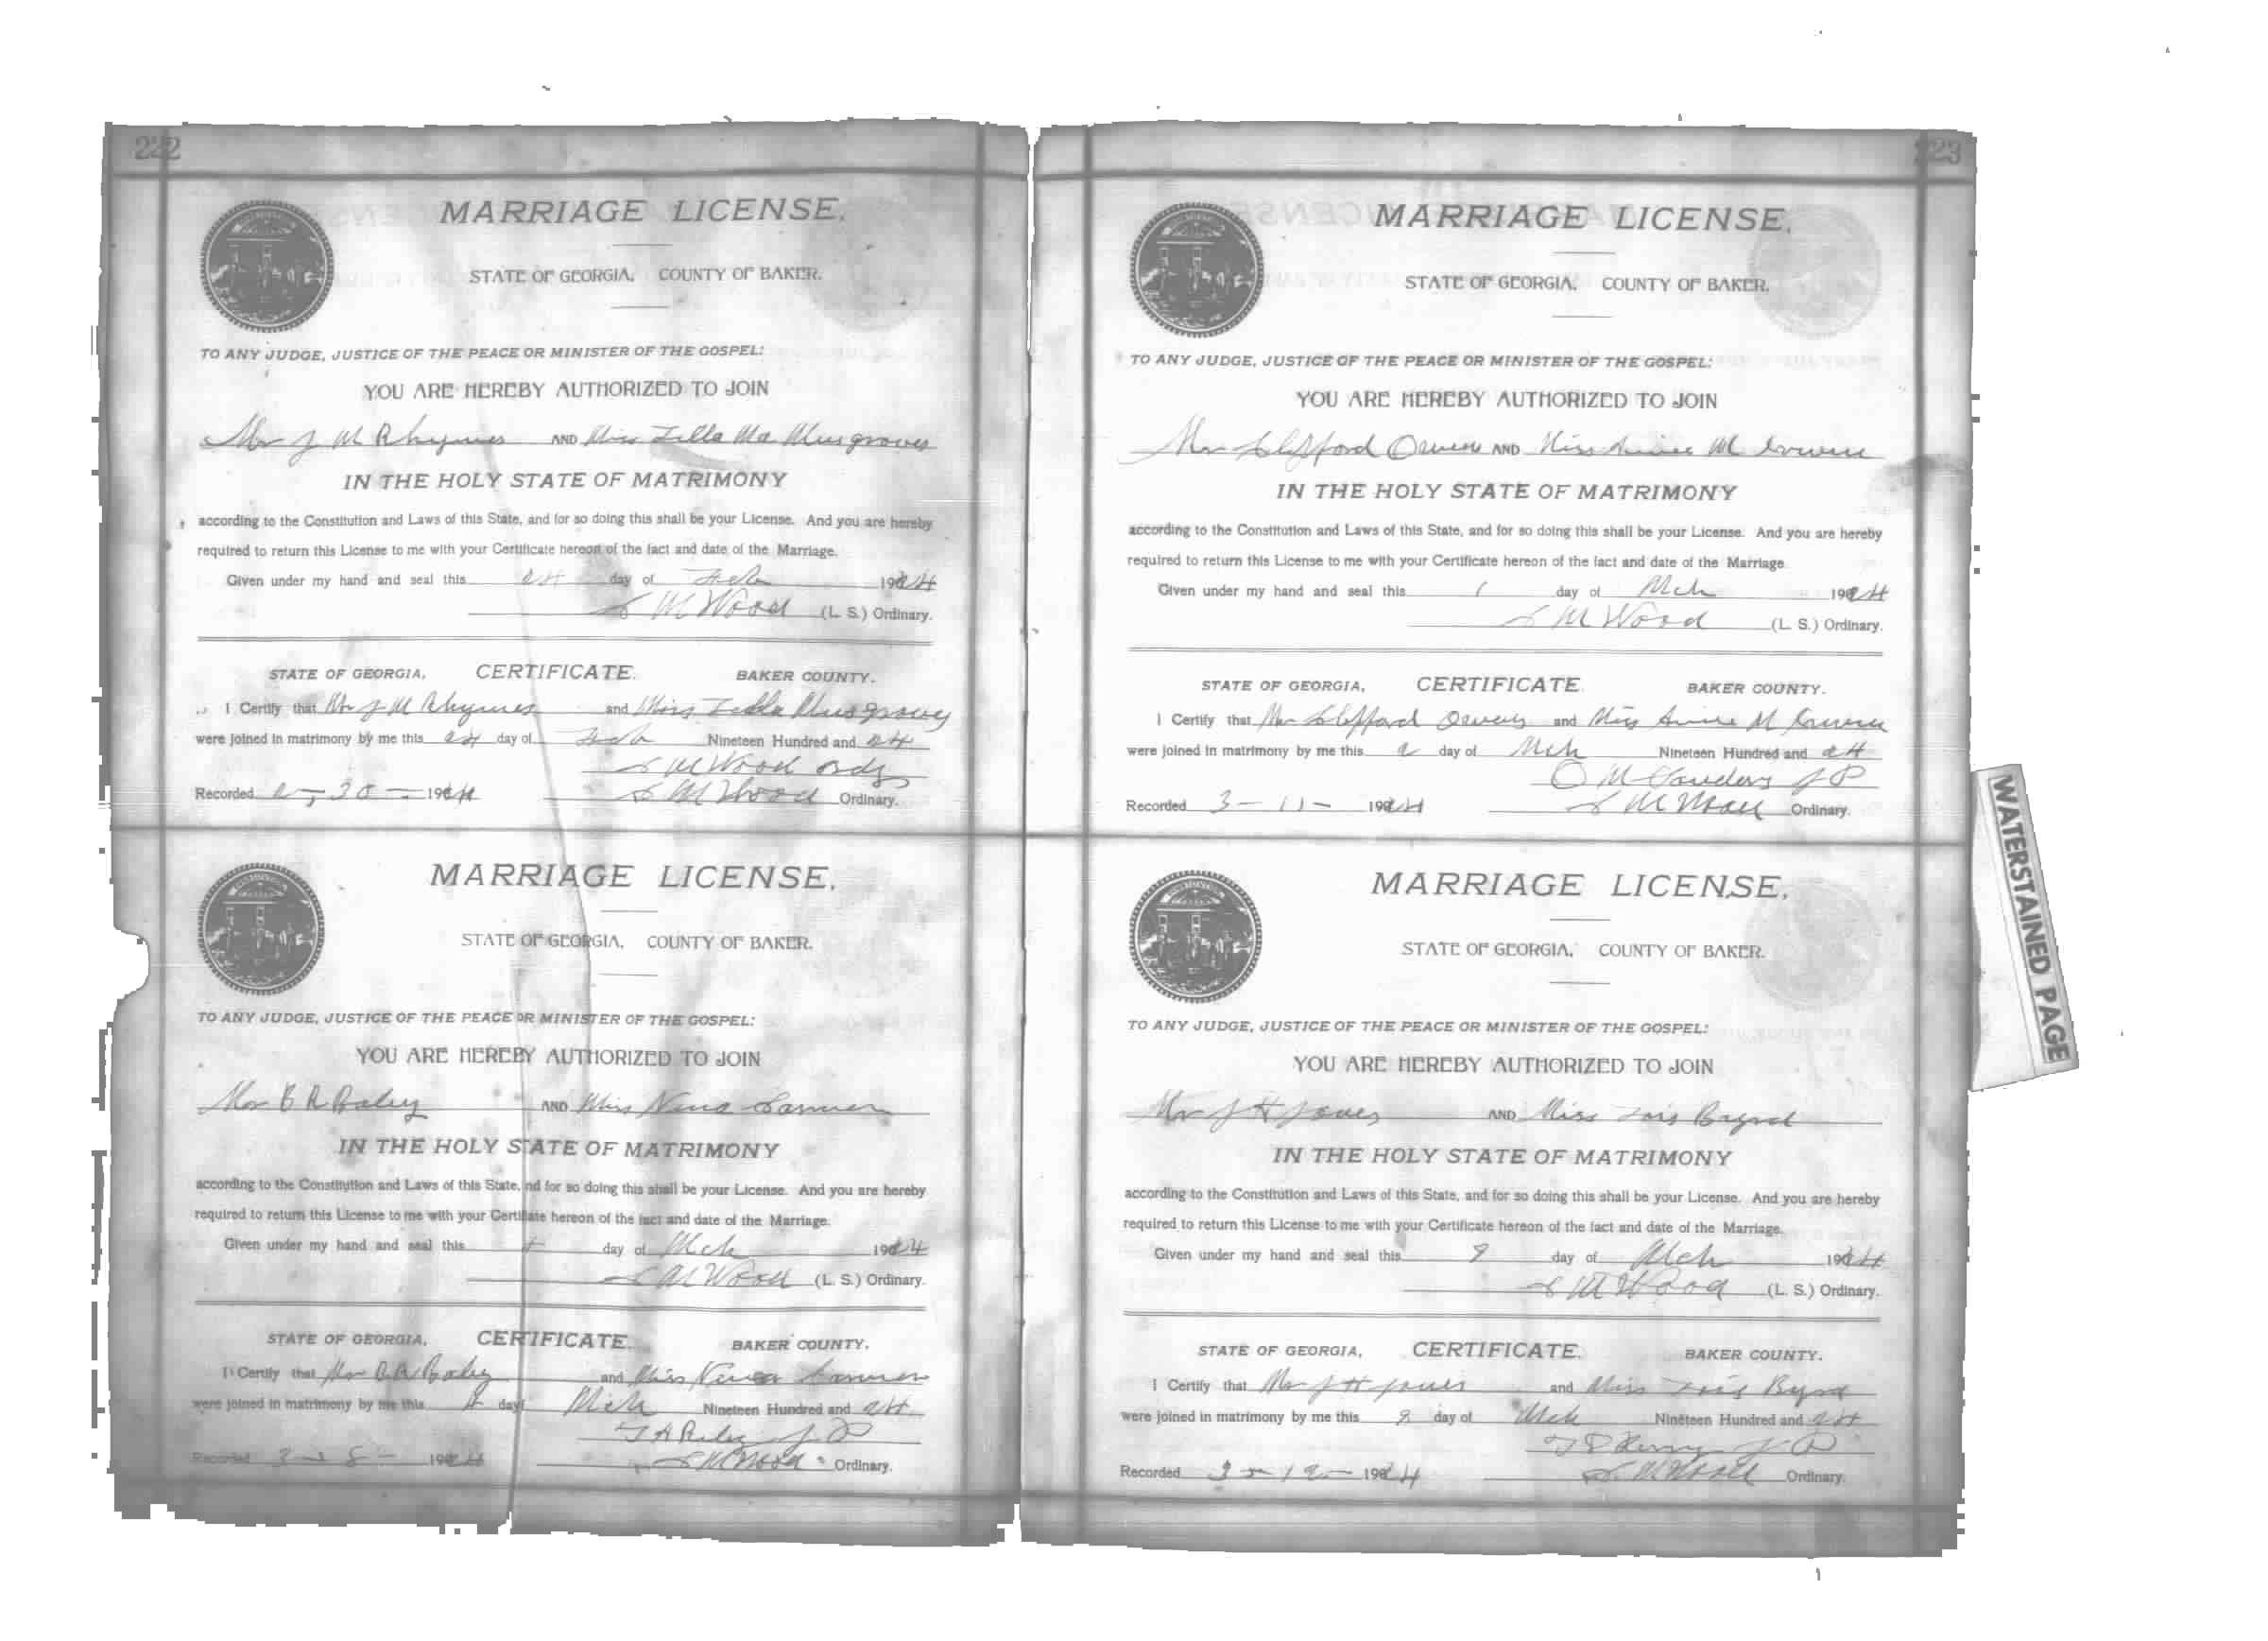 222
MARRIAGE LICENSE.
STATE OF GEORGIA, COUNTY OF BAKER.
TO ANY JUDGE, JUSTICE OF THE PEACE OR MINISTER OF THE GOSPEL:
YOU ARE HEREBY AUTHORIZED TO JOIN
Mr J M Rhymes AND Miss Musgroves
IN THE HOLY STATE OF MATRIMONY
according to the Constitution and Laws of this State, and for so doing this shall be your License. And you are hereby
required to return this License to me with your Certificate hereon of the fact and date of the Marriage.
Given under my hand and seal this 24 day of Feb 1924
S M Wood (L. S.) Ordinary.
STATE OF GEORGIA, CERTIFICATE. BAKER COUNTY.
I Certify that Mr J M Rhymes and Miss Musgroves
were joined in matrimony by me this 24 day of Feb Nineteen Hundred and 24
S M Wood Ordy
Recorded 2-30-1924 S M Wood Ordinary.
MARRIAGE LICENSE.
STATE OF GEORGIA, COUNTY OF BAKER.
TO ANY JUDGE, JUSTICE OF THE PEACE OR MINISTER OF THE GOSPEL:
YOU ARE HEREBY AUTHORIZED TO JOIN
Mr B R Baley AND Miss Nina
IN THE HOLY STATE OF MATRIMONY
according to the Constitution and Laws of this State, nd for so doing this shall be your License. And you are hereby
required to return this License to me with your Certificate hereon of the fact and date of the Marriage.
Given under my hand and seal this day of Mch 1924
S M Wood (L. S.) Ordinary.
STATE OF GEORGIA, CERTIFICATE. BAKER COUNTY.
I Certify that Mr B R Baley and Miss
were joined in matrimony by me this day Mch Nineteen Hundred and 24
J. P.
Recorded 3-8-1924 S M Wood Ordinary.
223
MARRIAGE LICENSE.
STATE OF GEORGIA, COUNTY OF BAKER.
TO ANY JUDGE, JUSTICE OF THE PEACE OR MINISTER OF THE GOSPEL:
YOU ARE HEREBY AUTHORIZED TO JOIN
Mr Clifford Owens AND Miss Annie M
IN THE HOLY STATE OF MATRIMONY
according to the Constitution and Laws of this State, and for so doing this shall be your License. And you are hereby
required to return this License to me with your Certificate hereon of the fact and date of the Marriage.
Given under my hand and seal this 1 day of Mch 1924
S M Wood (L. S.) Ordinary.
STATE OF GEORGIA, CERTIFICATE. BAKER COUNTY.
I Certify that Mr Clifford Owens and Miss Annie M
were joined in matrimony by me this 2 day of Mch Nineteen Hundred and 24
O M Sanders J P
Recorded 3-11-1924 S M Wood Ordinary.
MARRIAGE LICENSE.
STATE OF GEORGIA, COUNTY OF BAKER.
TO ANY JUDGE, JUSTICE OF THE PEACE OR MINISTER OF THE GOSPEL:
YOU ARE HEREBY AUTHORIZED TO JOIN
Mr J H Jones AND Miss Byrd
IN THE HOLY STATE OF MATRIMONY
according to the Constitution and Laws of this State, and for so doing this shall be your License. And you are hereby
required to return this License to me with your Certificate hereon of the fact and date of the Marriage.
Given under my hand and seal this day of Mch 1924
S M Wood (L. S.) Ordinary.
STATE OF GEORGIA, CERTIFICATE. BAKER COUNTY.
I Certify that Mr J H Jones and Miss Byrd
were joined in matrimony by me this day of Mch Nineteen Hundred and 24
J P
Recorded 3-12-1924 S M Wood Ordinary.
WATERSTAINED PAGE